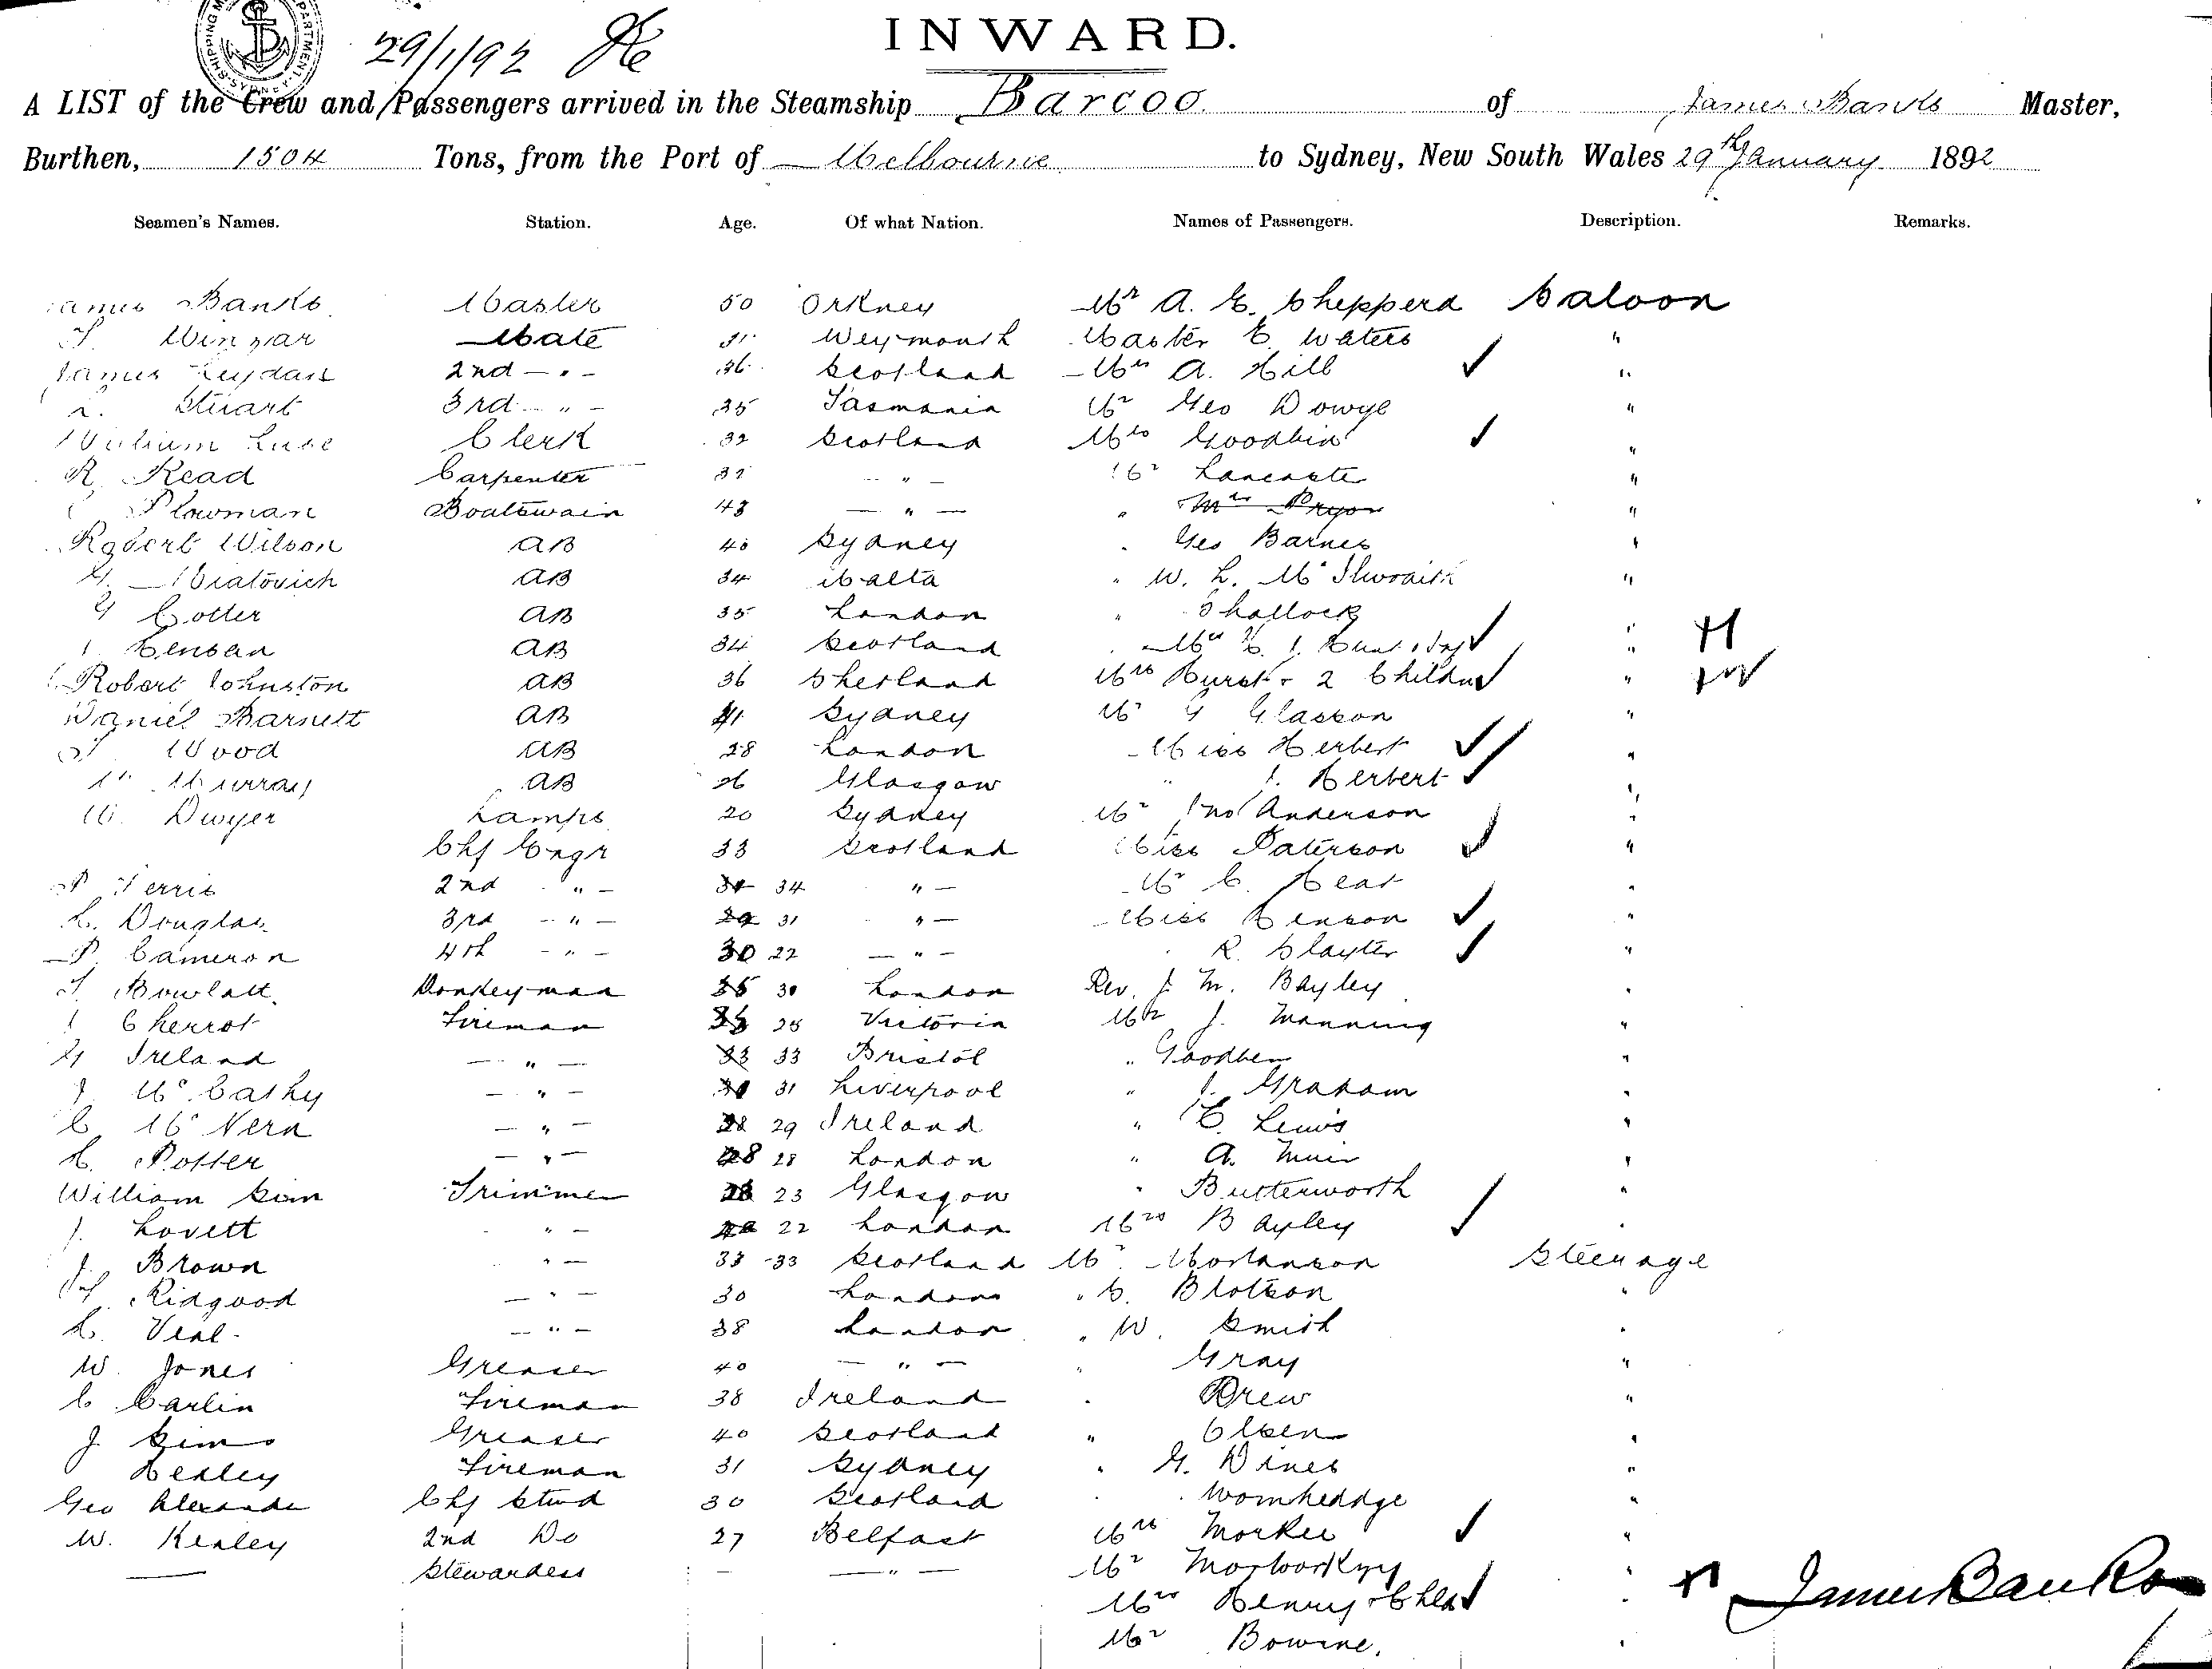 SHIPPING MASTER'S DEPARTMENT SYDNEY
29/1/92
INWARD.
A LIST of the Crew and Passengers arrived in the Steamship Barcoo of James Banks Master,
Burthen, 1504 Tons, from the Port of Melbourne to Sydney, New South Wales 29th January 1892
Seamen's Names. Station. Age. Of what Nation. Names of Passengers. Description. Remarks.
James Banks Master 50 Orkney Mr A. E. Shepperd Saloon
Winzar Mate Weymouth Master E. Waters "
James 2nd - " - 36 Scotland Mrs A. Hill ✓ "
Stuart 3rd - " - 35 Tasmania Mr Geo Dowye "
William Luke Clerk 32 Scotland Mrs ✓ "
R. Read Carpenter - " - Mr Lancaster "
Plowman Boatswain 43 - " - " Mrs Pryor "
Robert Wilson AB 40 Sydney " Geo Barnes "
AB 34 Malta " W. L. McIlwraith "
G Cotter AB 35 London " Shallock "
Henban AB 34 Scotland Hunt ✓ "
Robert Johnston AB 36 Shetland Mrs Hurst + 2 Childn ✓ "
Daniel Barnett AB 41 Sydney Mr G Glasson "
Wood AB 28 London Miss Herbert ✓ "
Murray AB 26 Glasgow " J. Herbert ✓ "
W. Dwyer Lamps 20 Sydney Mr Jno Anderson "
Chf Engr 33 Scotland Miss Paterson ✓ "
P Ferris 2nd " - 34 " - Mr C. "
L. Douglas 3rd - " - 29 31 " - Miss Henson ✓ "
P. Cameron 4th - " - 30 22 - " - " R. Slayter ✓ "
Donkeyman 35 30 London Rev. J. M. Bayley "
J Cherrot Fireman 25 Victoria Mr J. Manning "
G Ireland - " - 33 33 Bristol " Goodben "
J McCathy - " - 31 Liverpool " J. Graham "
C McNern - " - 28 29 Ireland " E. Lewis "
H. Potter - " - 28 28 London " A. Muir "
William Sim Trimmer 23 Glasgow " Butterworth "
J. Lovett " - 22 London Mrs Bayley ✓ "
J. Brown " - 33 - 33 Scotland Mr Steerage
Ridgood - " - 30 London " C. Blotson "
H. Veal - " - 38 London " W. Smith "
W. Jones Greaser 40 - " - " Gray "
C Carlin Fireman 38 Ireland " Drew "
J Sims Greaser 40 Scotland " Olsen "
Hedley Fireman 31 Sydney " G. Dines "
Geo Alexander Chf Stwd 30 Scotland " Wornheddge "
W. Kenley 2nd Do 27 Belfast Mrs ✓ "
— Stewardess - - " - Mr "
Mrs Henry + Chld ✓ " James Banks
Mr Bowine. "